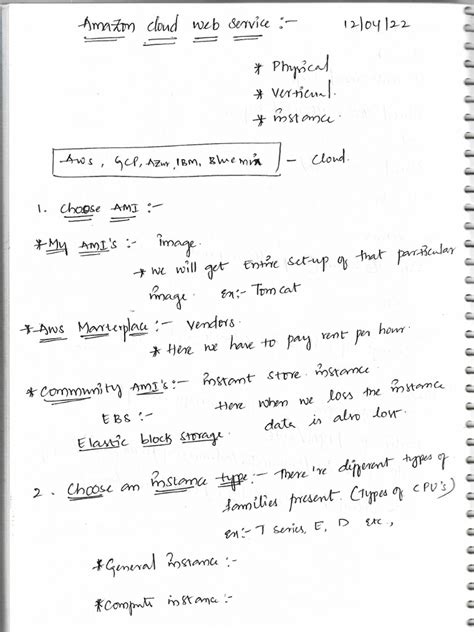 Amazon cloud web service :- 12/04/22
* Physical
* Verticual.
* instance.
Aws, GCP, Azur, IBM, Bluemix - Cloud.
1. Choose AMI :-
* My AMI's :- image.
* we will get Entire set-up of that particular
image. Ex:- Tomcat
* Aws Marterplace :- Vendors.
* Here we have to pay rent per hour.
* Community AMI's :- instant store instance.
EBS :- Here when we loss the instance
Elastic block storage. data is also lost.
2. Choose an instance type :- There're different types of
families present. (Types of CPU's)
Ex:- T Series, E, D etc.,
* General instance :-
* Compute instance :-